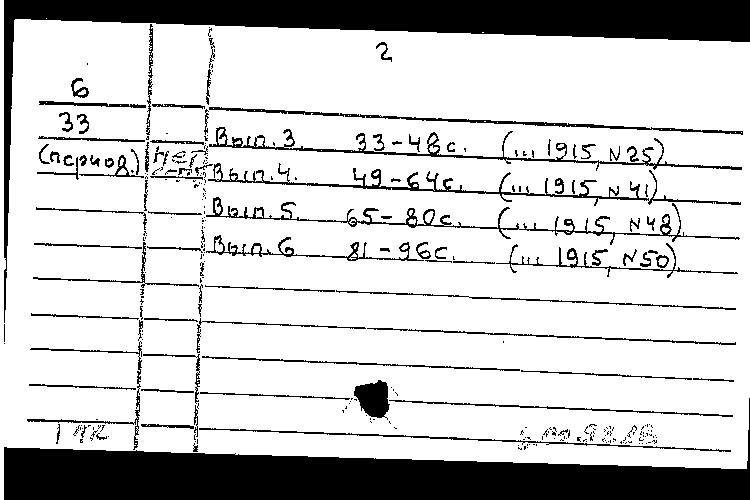 2
6
33
(период.) нет
Вып. 3. 33-48с. (... 1915, N25).
Вып. 4. 49-64с. (... 1915, N41).
Вып. 5. 65-80с. (... 1915, N48)
Вып. 6 81-96с. (... 1915, N50).